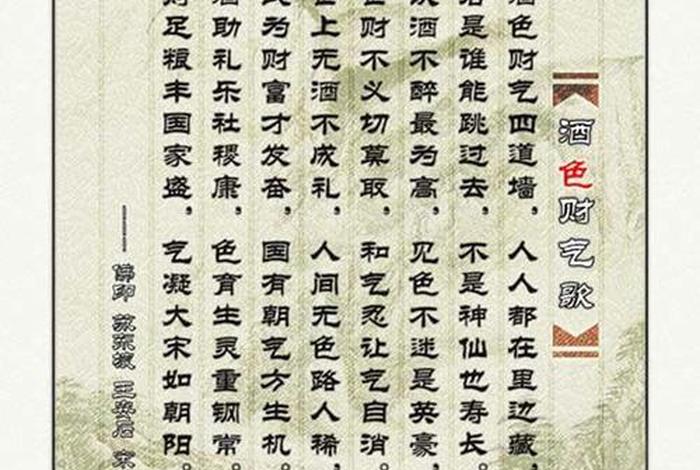 酒色财气歌
酒色财气四道墙，人人都在里边藏，
若是谁能跳过去，不是神仙也寿长。
饮酒不醉最为高，见色不迷是英豪，
世财不义切莫取，和气忍让气自消。
世上无酒不成礼，人间无色路人稀，
民为财富才发奋，国有朝气方生机。
酒助礼乐社稷康，色育生灵重钢常，
财足粮丰国家盛，气凝大宋如朝阳。
——佛印 苏东坡 王安石 宋